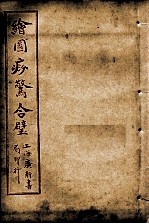 繪圖痧驚合璧
上海廣新書
局印行